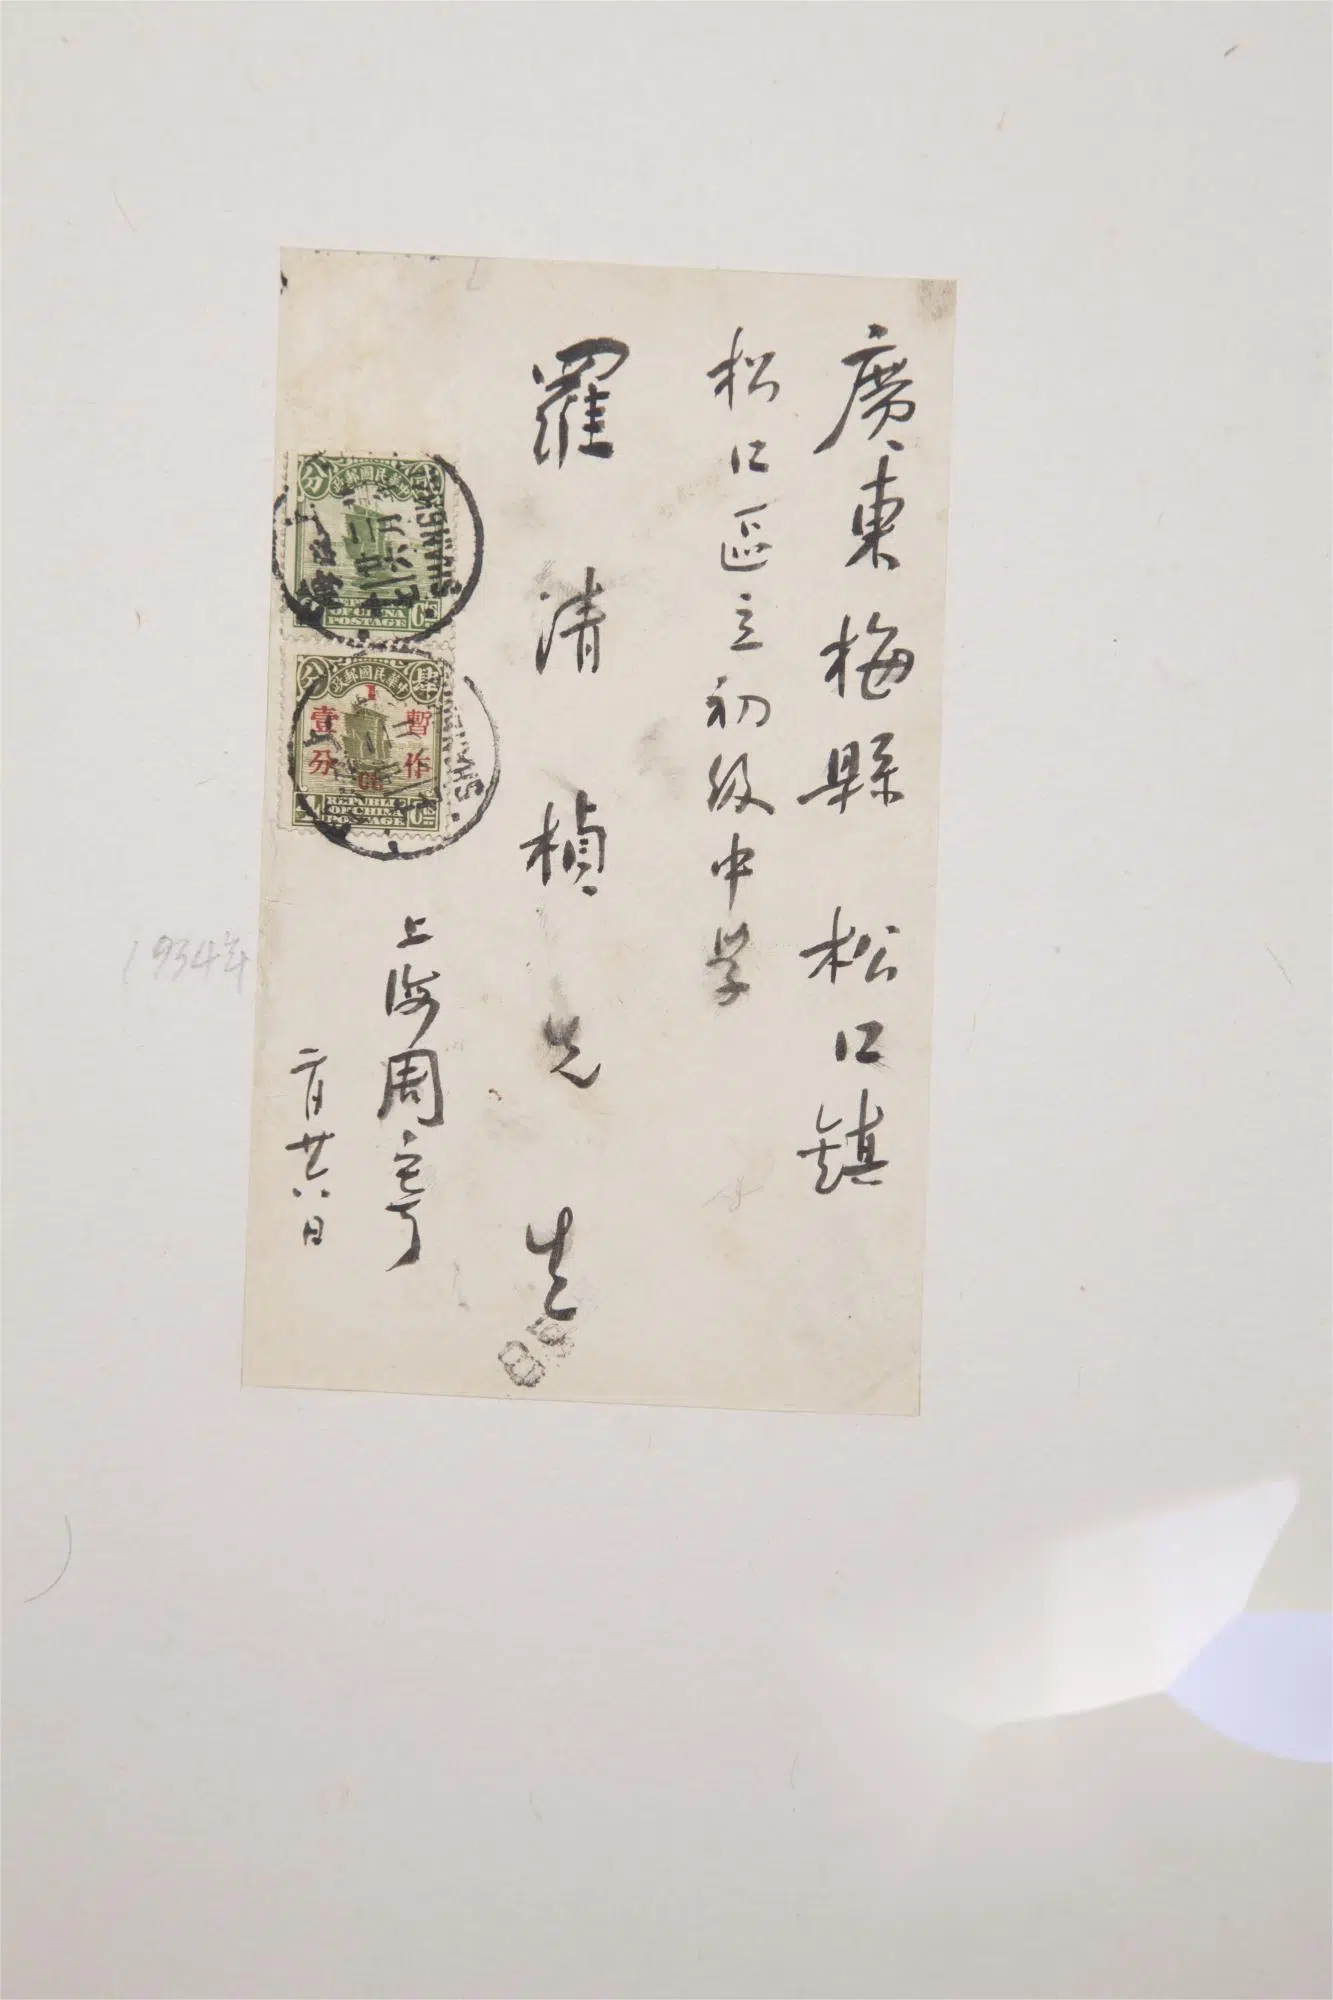 廣東梅縣松口鎮
松口區立初級中学
羅清楨先生
上海周寄
二月廿六日
1934年
分
政郵國民華中
OF CHINA
POSTAGE
SHANGHAI
分 肆
政郵國民華中
1
暫作
壹分
4
REPUBLIC
OF CHINA
POSTAGE